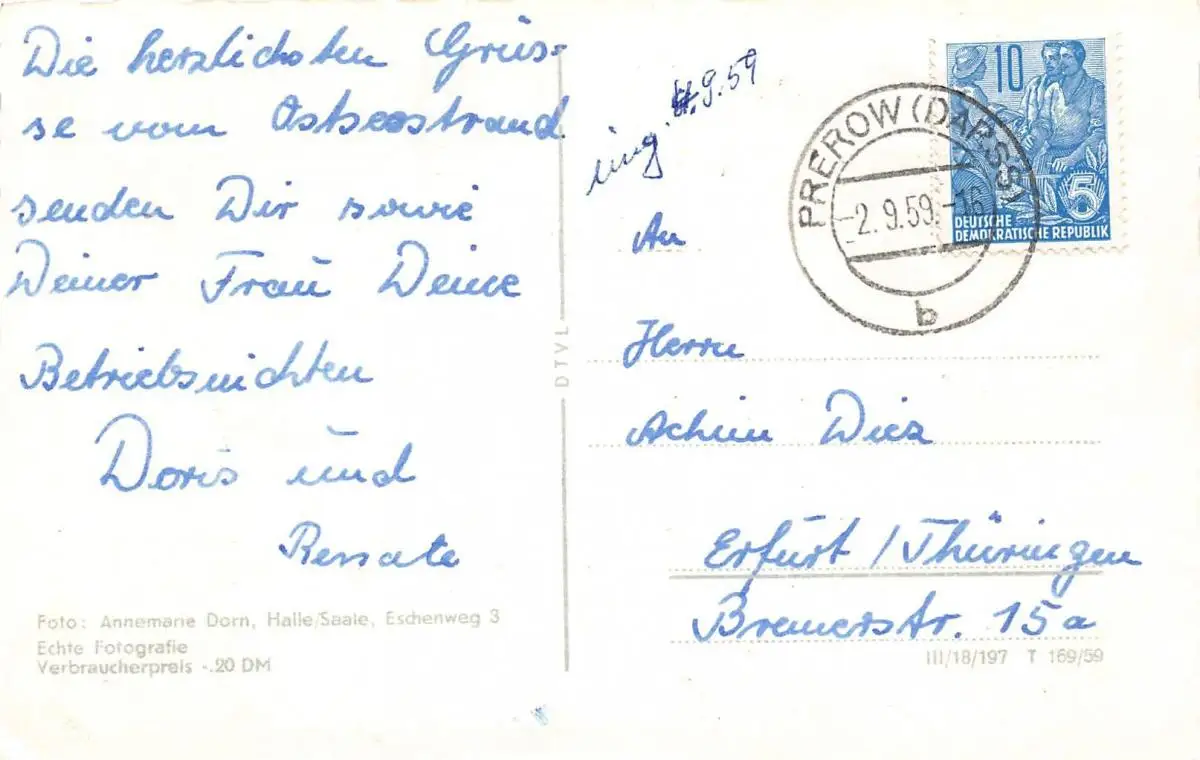 Die herzlichsten Grüs-
se vom Ostseestrand
senden Dir sowie
Deiner Frau Deine
Betriebsnichten
Doris und
Renate
Foto: Annemarie Dorn, Halle/Saale, Eschenweg 3
Echte Fotografie
Verbraucherpreis -.20 DM
DTVL
4.9.59
PREROW (DARSS)
-2.9.59.-16
b
10
5
DEUTSCHE
DEMOKRATISCHE REPUBLIK
An
Herrn
Achim
Erfurt/Thüringen
Bremerstr. 15a
III/18/197 T 169/59